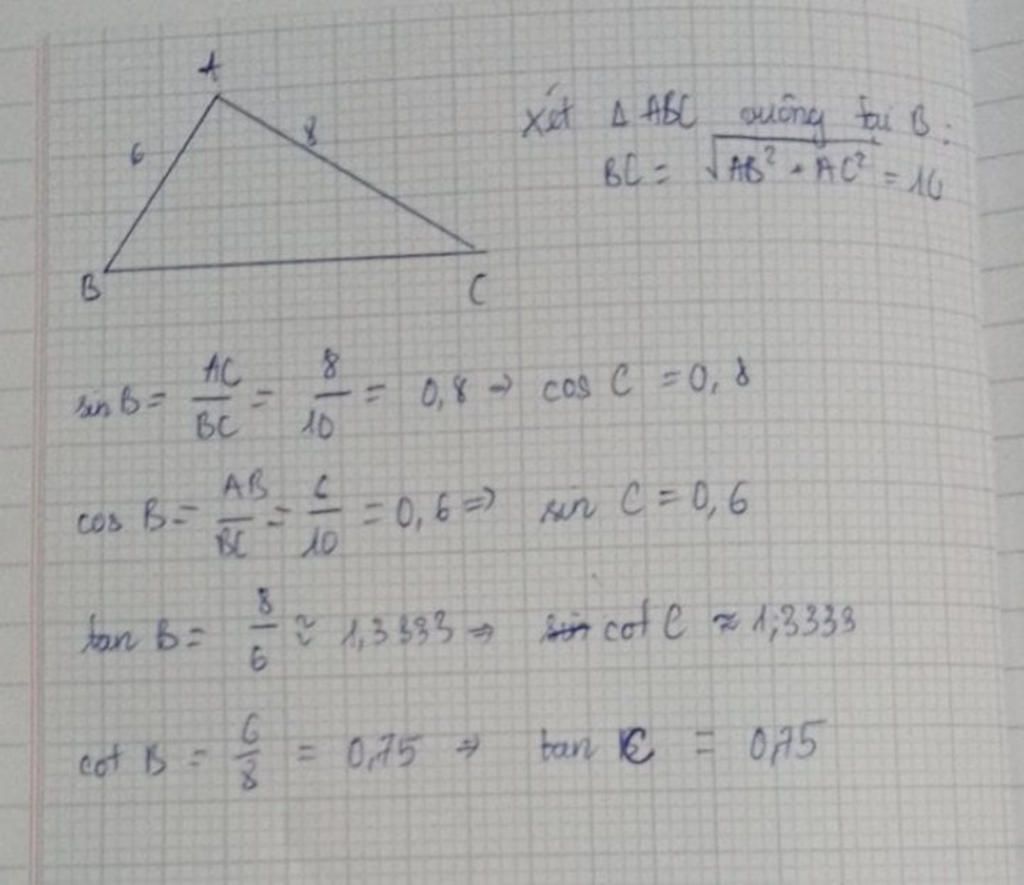 A
6
8
B
C
Xét Δ ABC vuông tại B:
BC = √AB² + AC² = 10
sin B = AC/BC = 8/10 = 0,8 → cos C = 0,8
cos B = AB/BC = 6/10 = 0,6 => sin C = 0,6
tan B = 8/6 ≈ 1,3333 => cot C ≈ 1,3333
cot B = 6/8 = 0,75 => tan C = 0,75